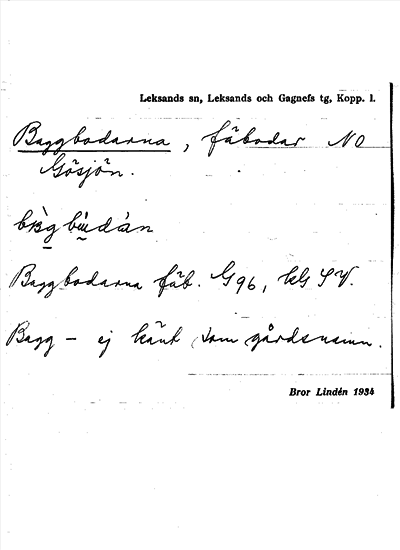 Leksands sn, Leksands och Gagnefs tg, Kopp. l.
Baggbodarna, fäbodar NO
Gösjön.
Baggbodarna fäb. G96, kbl SV.
Bagg - ej känt som gårdsnamn.
Bror Lindén 1934